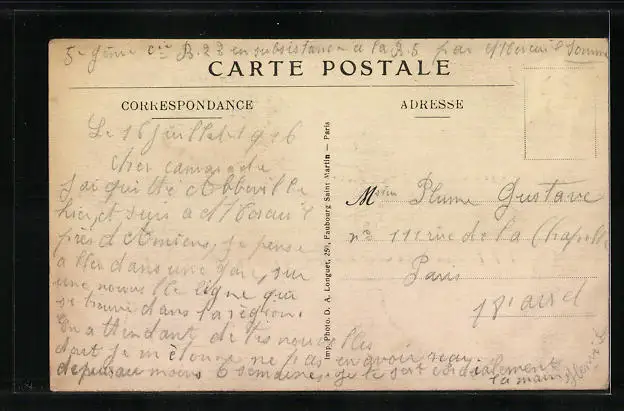 5e Génie Cie R. 2 Z en subsistance a la R. 5 par Moreuil Somme
CARTE POSTALE
CORRESPONDANCE
ADRESSE
Le 16 juillet 1916
Cher camarade
J'ai quitté Abbeville
hier, et suis a Moreuil
près d'Amiens, je pense
aller dans une gare, sur
une nouvelle ligne qui
se trouve dans la région.
En attendant de tes nouvelles
dont je m'étonne ne pas en avoir reçu
depuis au moins 6 semaines. Je te sert cordialement
la main
Imp. Photo. D. A. Longuet, 250, Faubourg Saint Martin - Paris
Plume Gustave
no 111 rue de la Chapelle
Paris
18e arrd